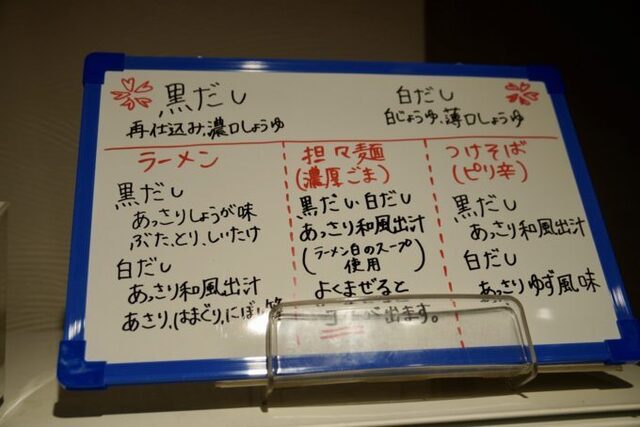 黒だし
再仕込み、濃口しょうゆ
白だし
白じょうゆ、薄口しょうゆ
ラーメン
黒だし
あっさりしょうが味
ぶた、とり、しいたけ
白だし
あっさり和風出汁
あさり、はまぐり、にぼし等
担々麺
(濃厚ごま)
黒だい白だし
あっさり和風出汁
(ラーメン白のスープ
使用)
よくまぜると
が出ます。
つけそば
(ピリ辛)
黒だし
あっさり和風出汁
白だし
あっさりゆず風味